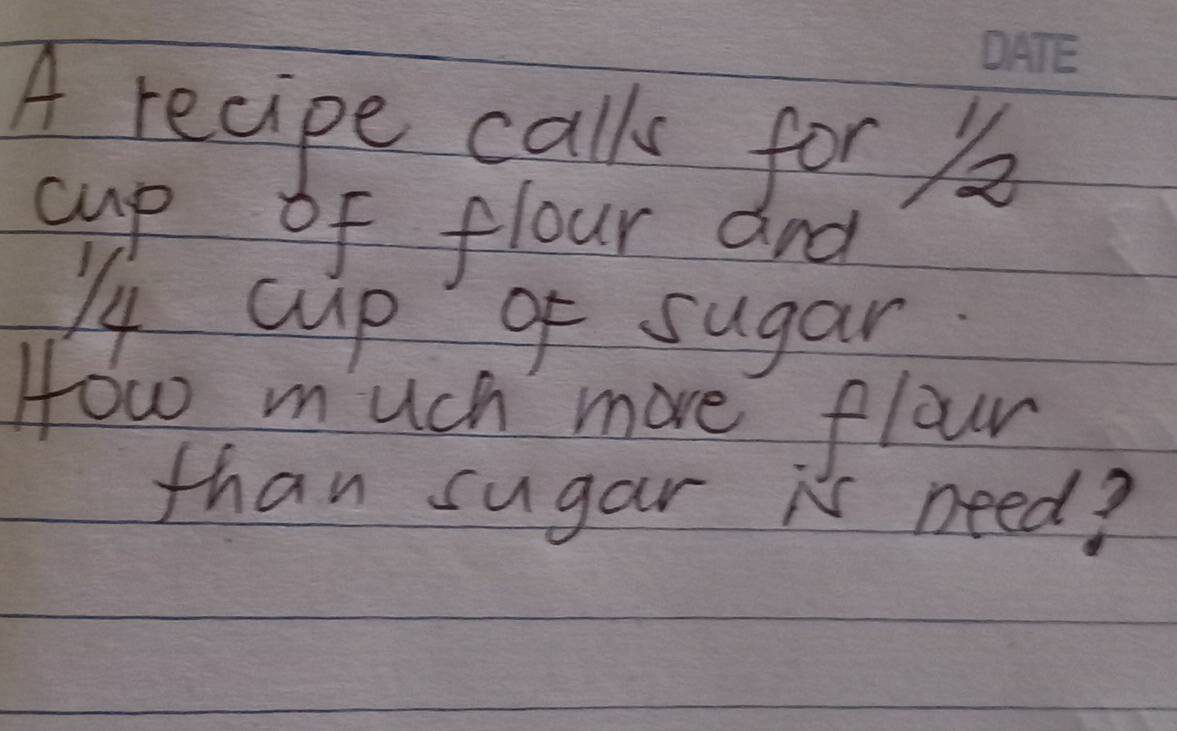 DATE
A recipe calls for 1/2
cup of flour and
1/4 cup of sugar.
How much more flour
than sugar is need?